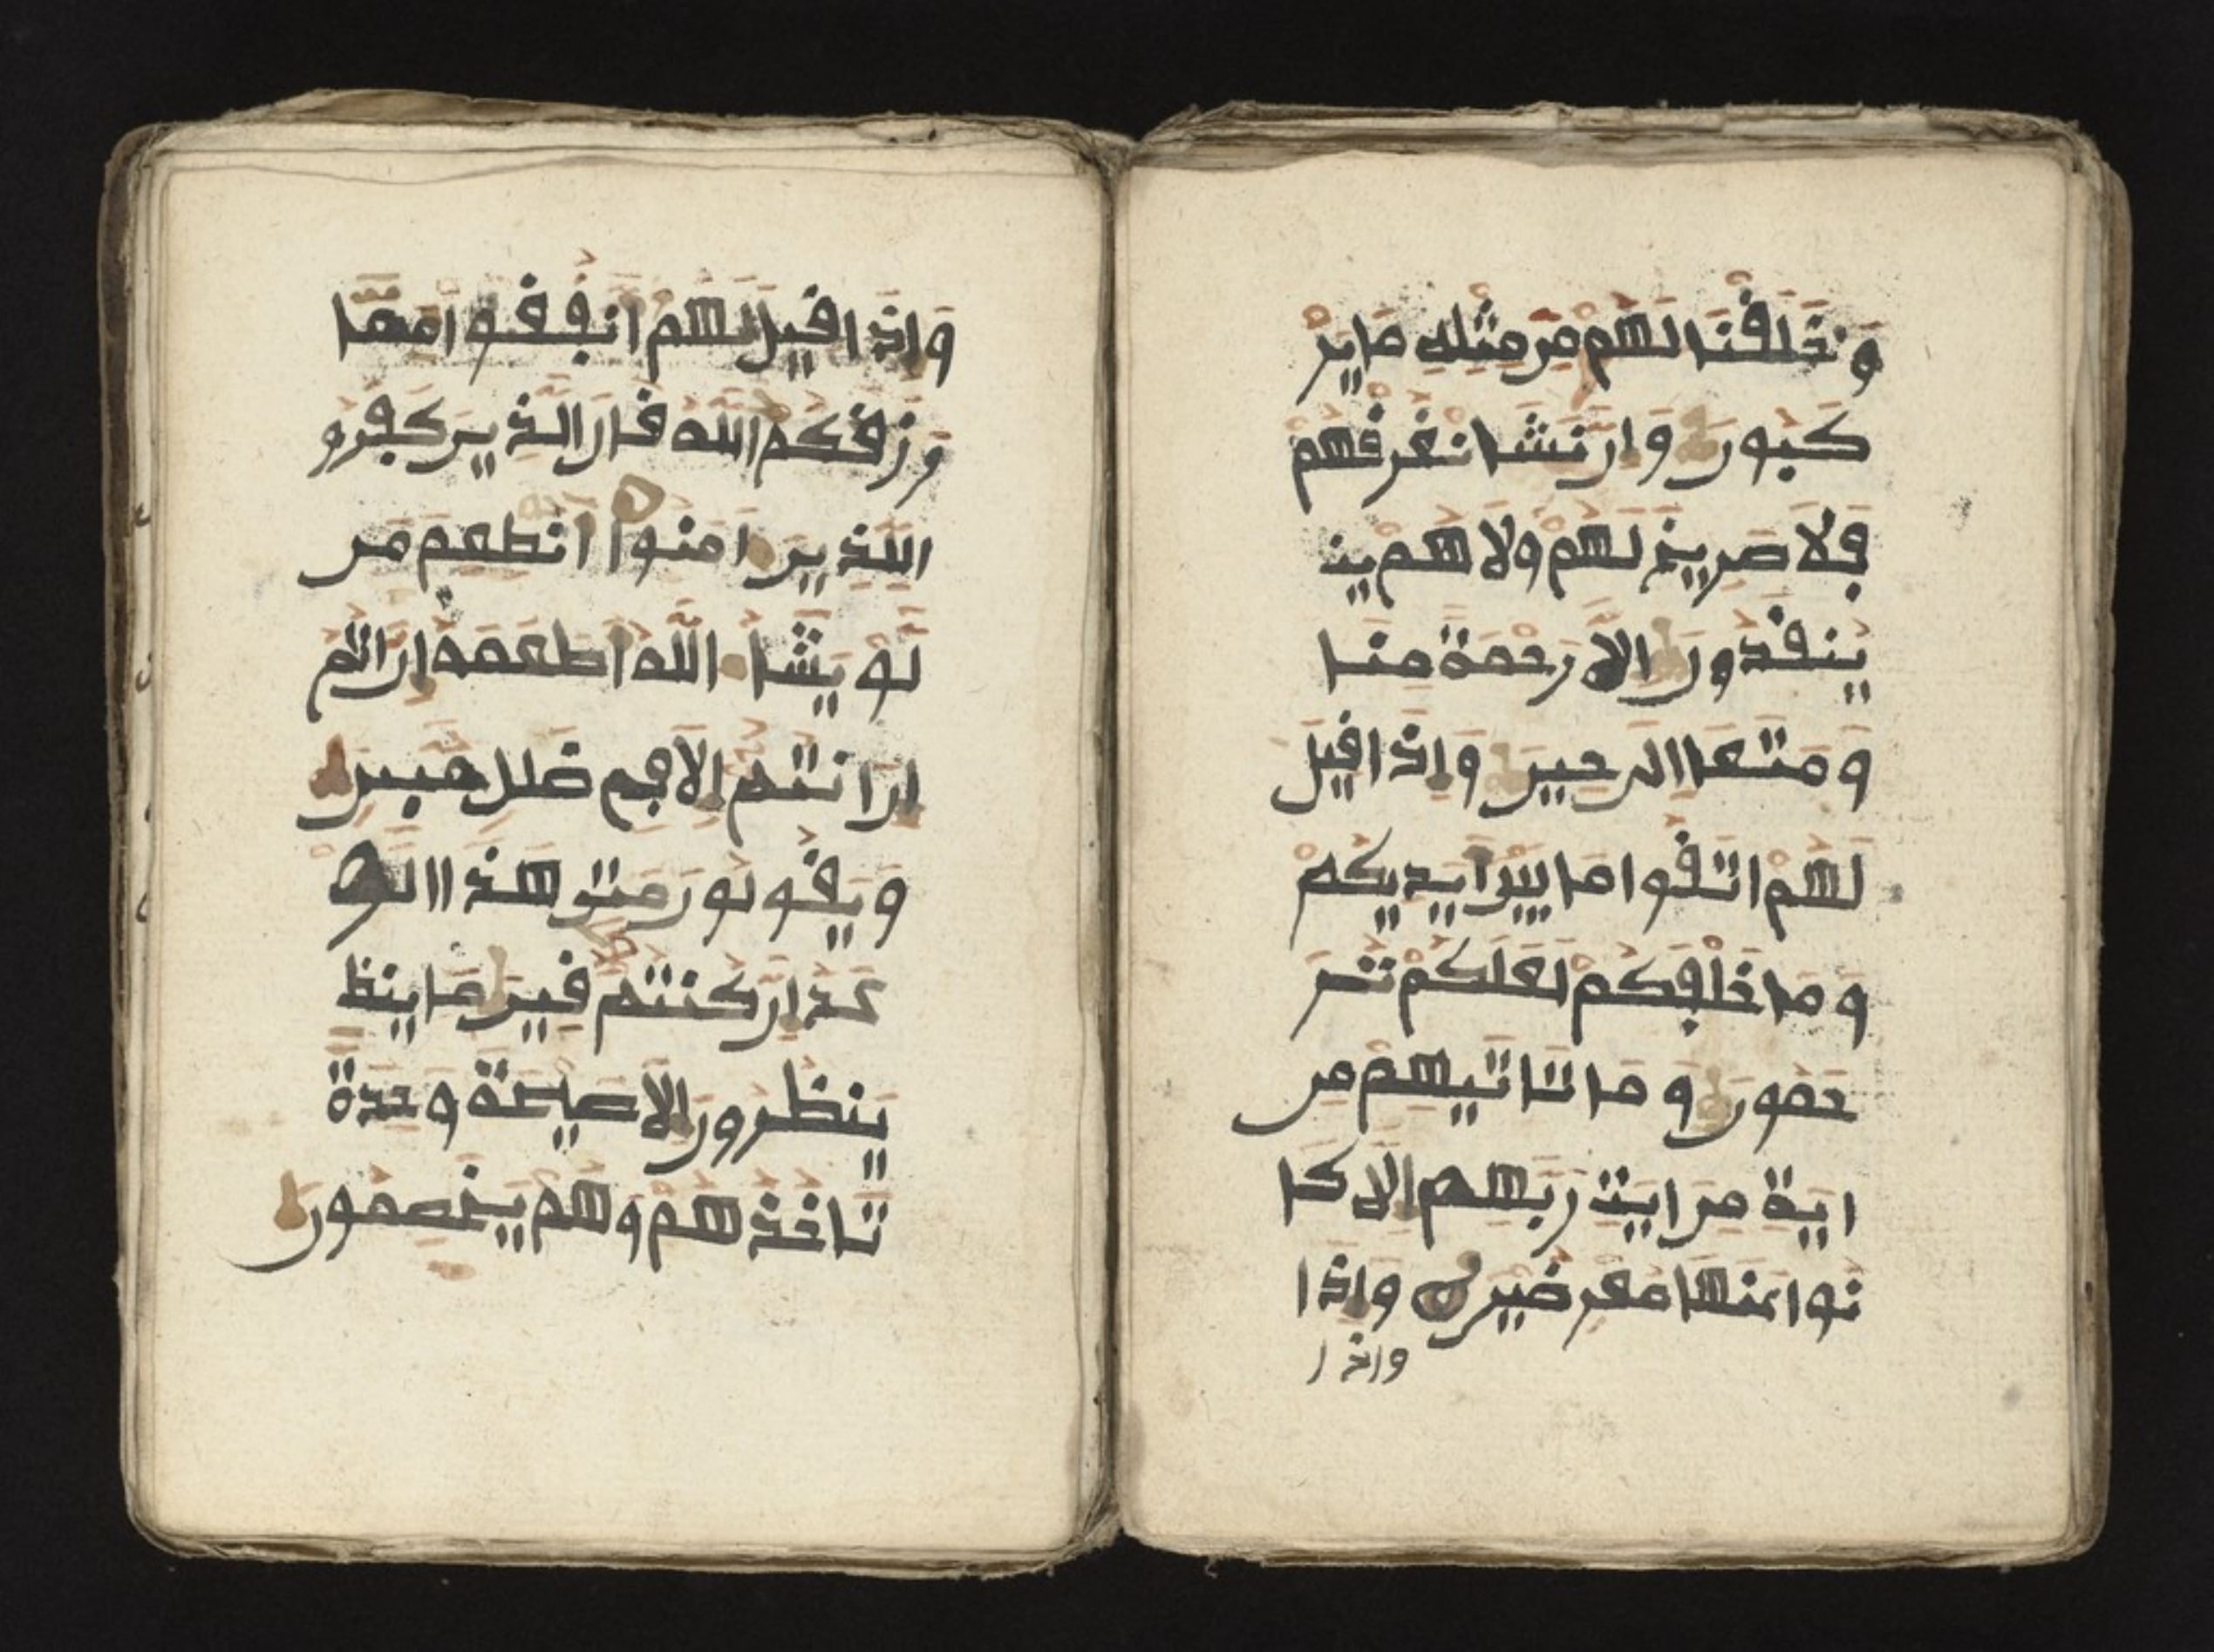 وَخَلَقْنَا لَهُمْ مِن مِثْلِهِ مَا يَرْ
كَبُون وَإِن نَشَا نُغْرِقْهُمْ
فَلَا صَرِيخَ لَهُمْ وَلَا هُمْ ين
يُنقَذُونَ إِلَّا رَحْمَةً مِنَّا
وَمَتَعًا إِلَى حِينٍ وَإِذَا قِيلَ
لَهُمُ اتَّقُوا مَا بَيْنَ أَيْدِيكُمْ
وَمَا خَلْفَكُمْ لَعَلَّكُمْ تُر
حَمُونَ وَمَا تَاتِيهِم مِن
ايَةٍ مِنَ ايَتِ رَبِّهِم إِلَّا كَا
نُوا عَنْهَا مُعْرِضِين وَإِذَا
واذا
وَإِذَا قِيلَ لَهُمْ أَنفِقُوا مِمَّا
رَزَقَكُمُ اللَّهُ قَالَ الَّذِينَ كَفَرُو
لِلَّذِينَ امَنُوا أَنُطْعِمُ مَن
لَوْ يَشَا اللَّهُ أَطْعَمَهُ إن انتم
إِنَ انتُمْ إِلَّا فِي ضَلَلٍ مُبِينٍ
وَيَقُولُونَ مَتَى هَذَا الْو
عْدُ إِن كُنتُمْ صَدِقِينَ مَا ينظ
يَنظُرُونَ إِلَّا صَيْحَةً وَحِدَةً
تَاخُذُهُمْ وَهُمْ يَخَصِّمُونَ